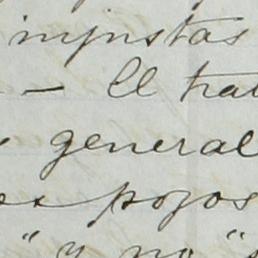 injustas
— El trat
general
pojos
" y no "